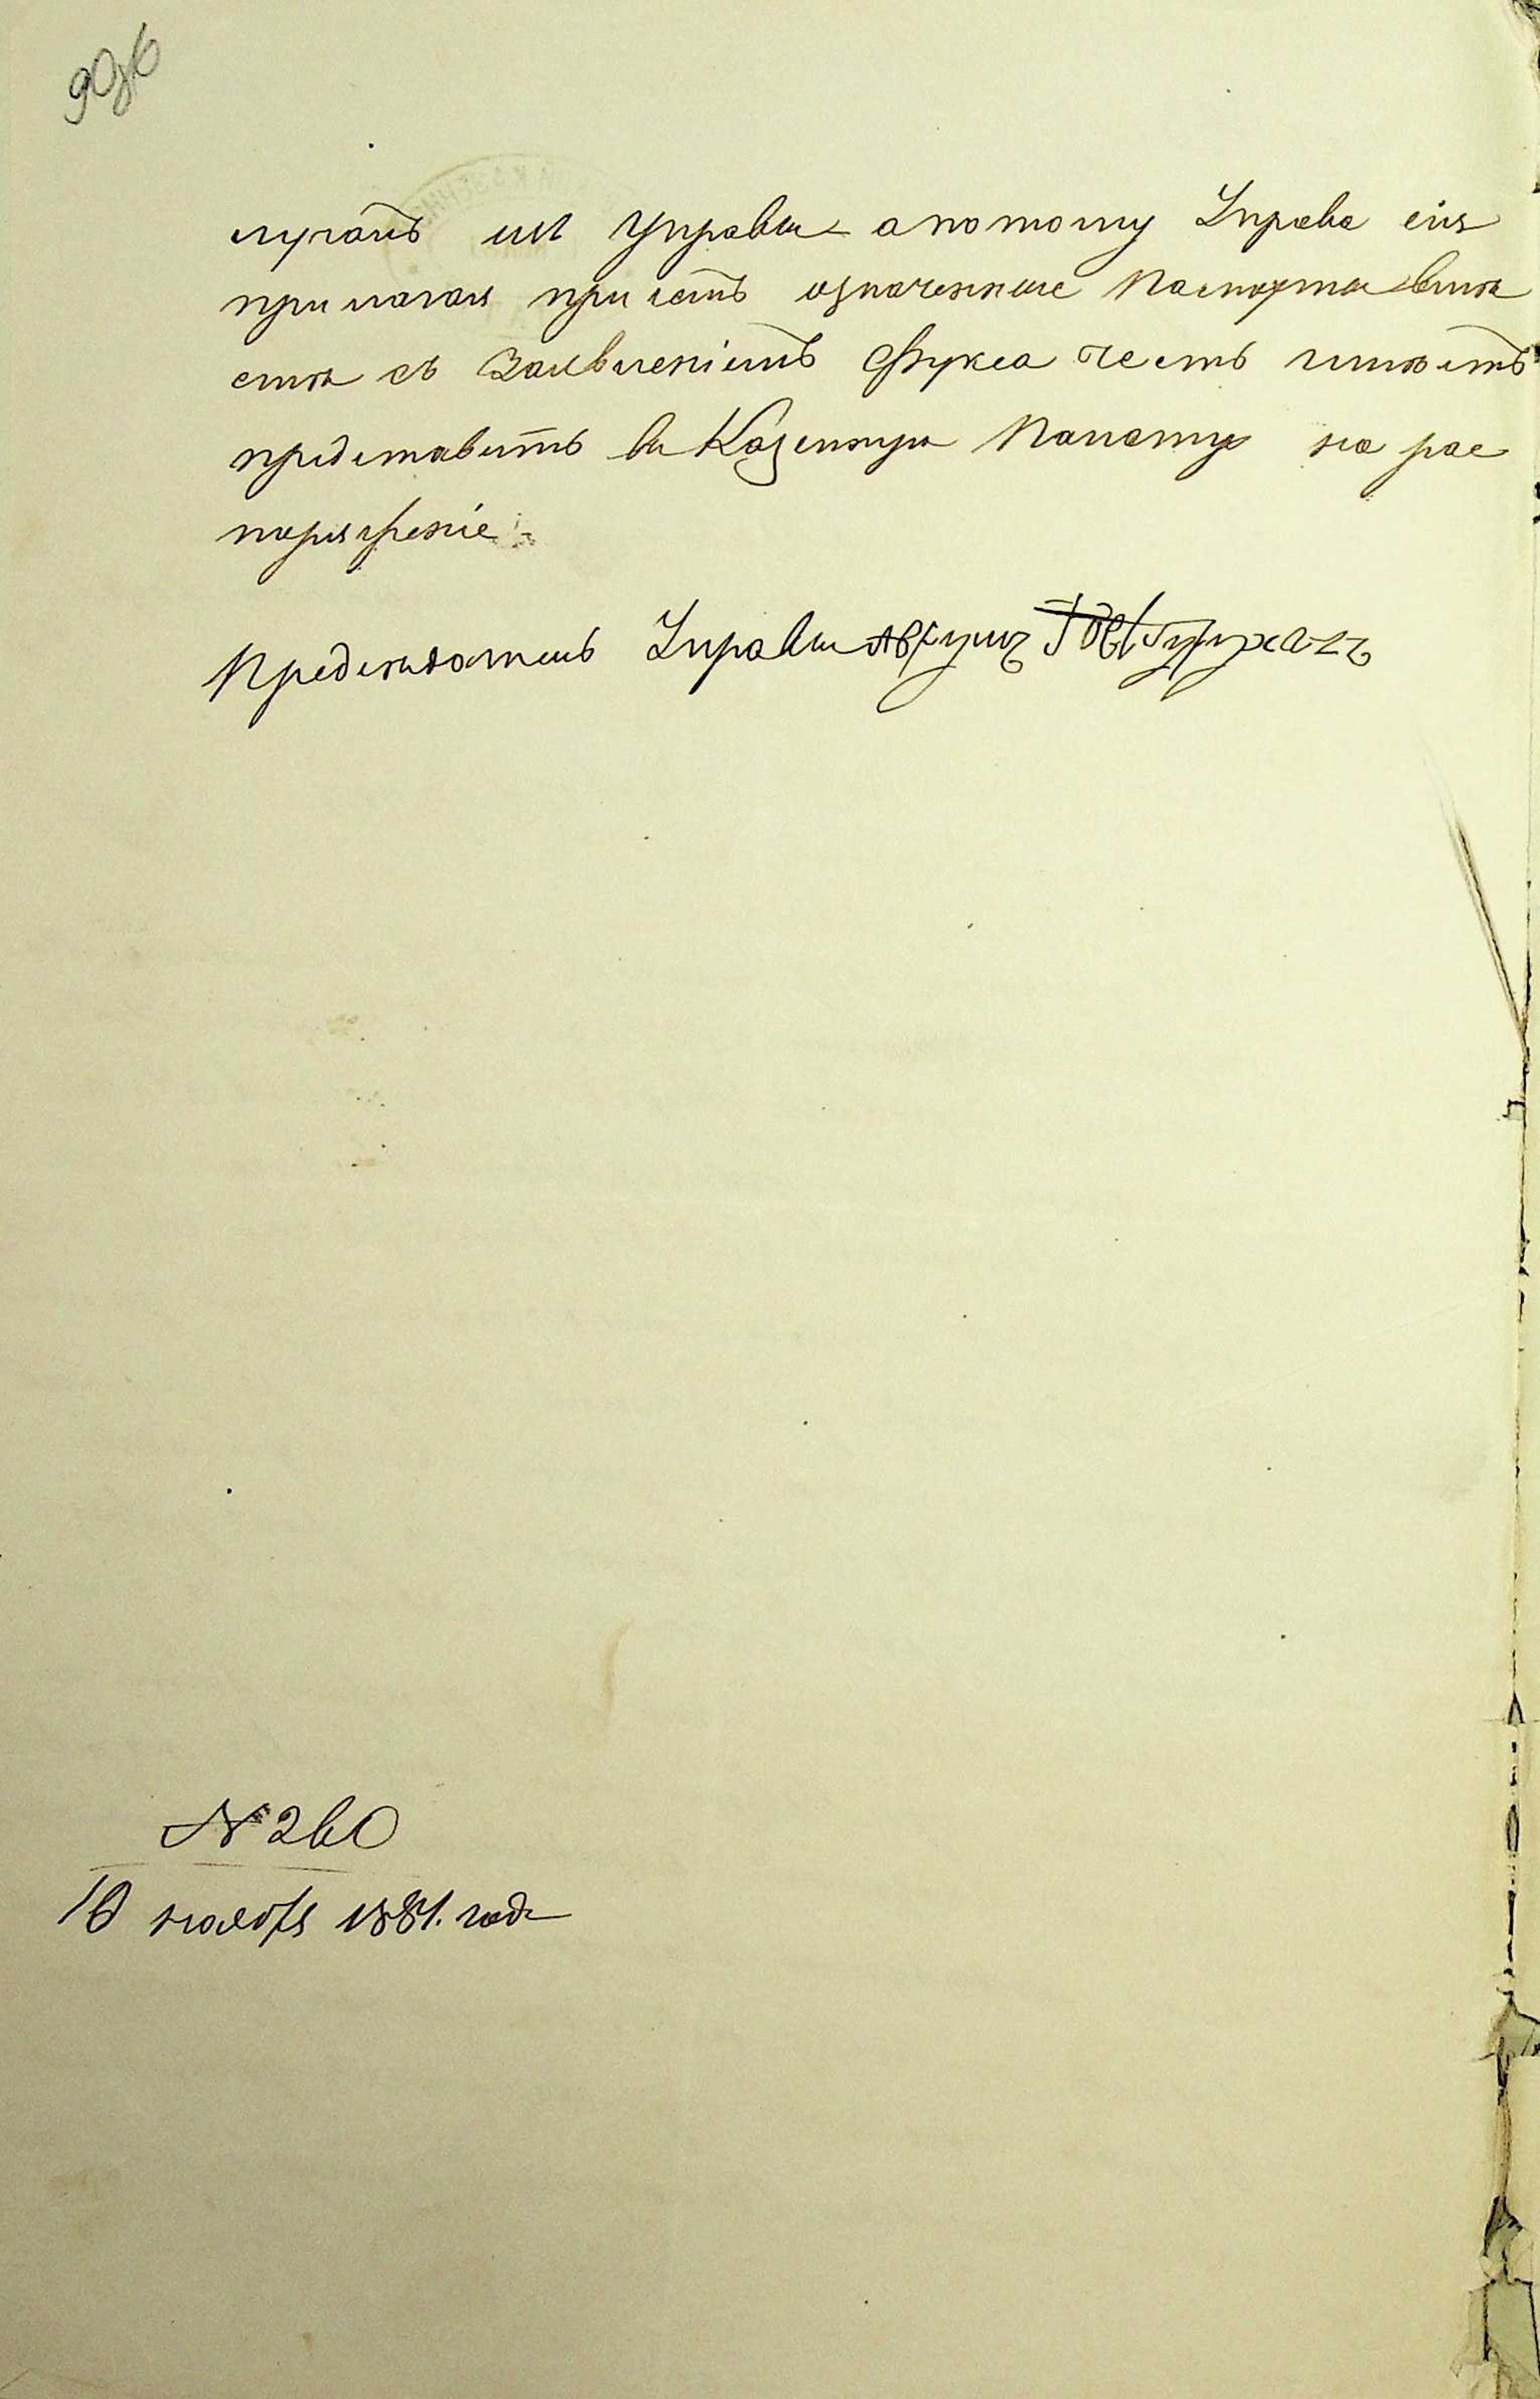 90об
лучать изъ Управы а потому Управа сія
прилагая при семъ означенные паспорты вмѣ
стѣ съ Заявленіемъ Фукса честь имѣетъ
представить въ Казенную Палату на рас
поряженіе
Предсѣдатель Управы
№ 260
1881. года